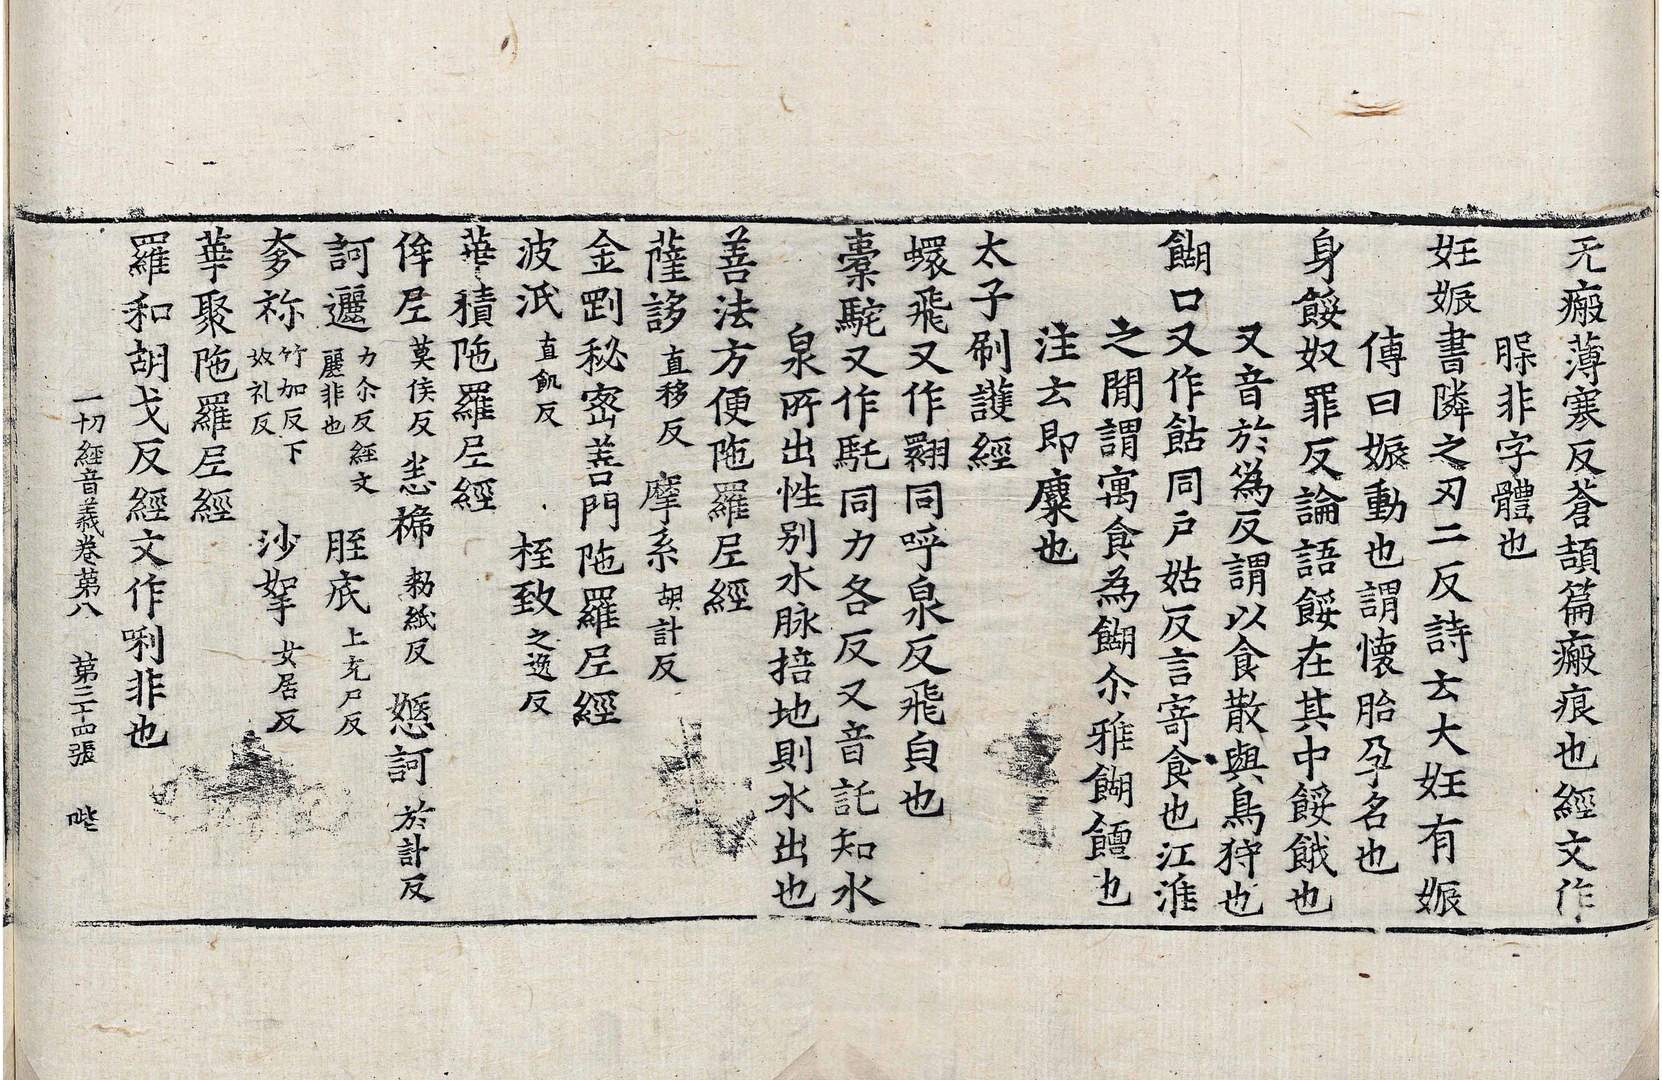 无瘢薄寒反蒼頡篇瘢痕也經文作
䐔非字體也
妊娠書隣之刃二反詩云大妊有娠
傳曰娠動也謂懷胎孕名也
身餧奴罪反論語餧在其中餧餓也
又音於爲反謂以食散與鳥狩也
餬口又作𩚩同戶姑反言寄食也江淮
之閒謂寓食為餬尒雅餬饘也
注云即麋也
太子刷護經
蠉飛又作翾同呼泉反飛皃也
橐駝又作馲同力各反又音託知水
泉所出性別水脉掊地則水出也
善法方便陁羅尼經
薩䛄 直移反 摩系 胡計反
金剛秘密善門陁羅尼經
波泜 直飢反 桎致 之逸反
華積陁羅尼經
侔尼 莫侯反 恙㮛 勑紙反 㥷訶 於計反
訶邐 力尒反經文麗非也 胵底 上充尸反
奓祢 竹加反下奴礼反 沙挐 女居反
華聚陁羅尼經
羅和胡戈反經文作唎非也
一切經音義卷第八 第三十四張 㗻